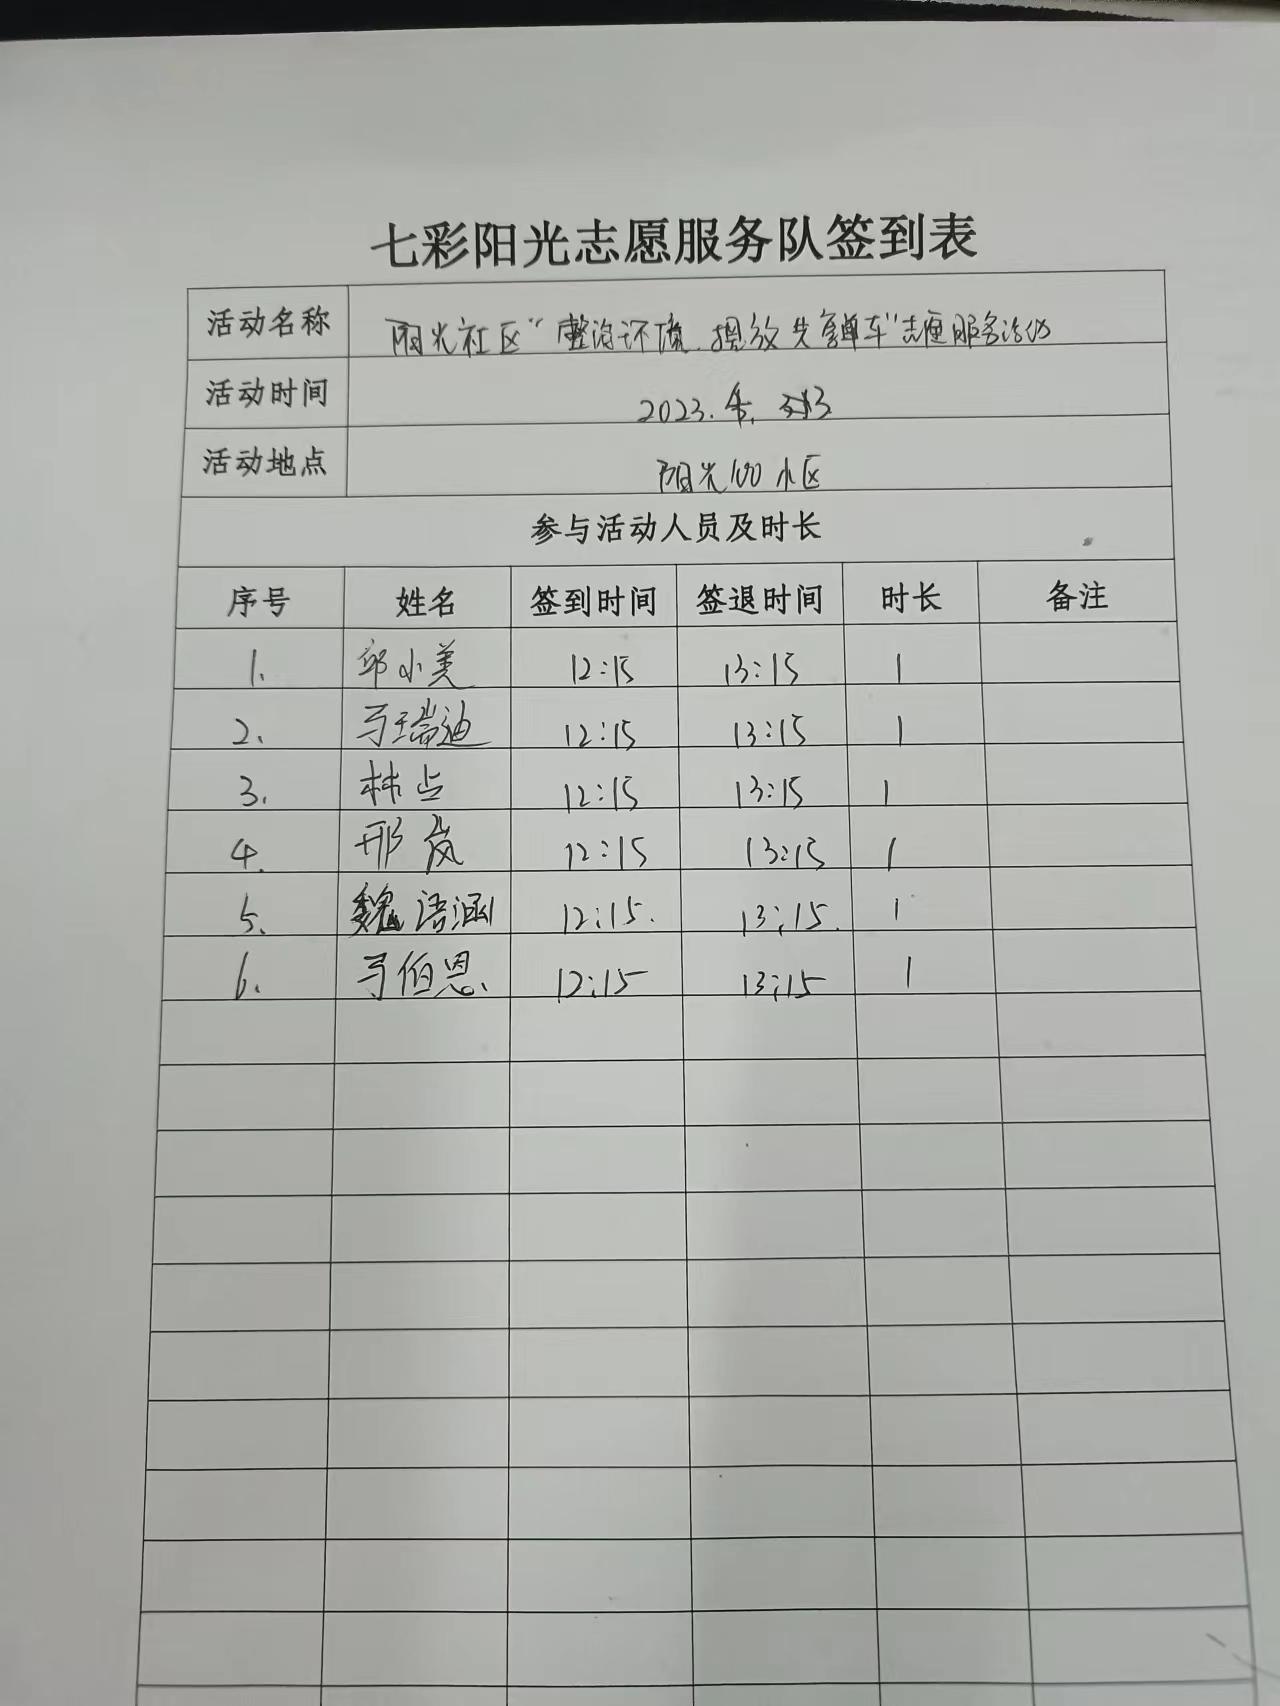 七彩阳光志愿服务队签到表
活动名称 阳光社区“整治环境、摆放共享单车”志愿服务活动
活动时间 2023.
活动地点 阳光100小区
参与活动人员及时长
序号 姓名 签到时间 签退时间 时长 备注
1. 邱小美 12:15 13:15 1
2. 马瑞迪 12:15 13:15 1
3. 林 12:15 13:15 1
4. 邢岚 12:15 13:15 1
5. 魏语涵 12:15. 13:15. 1
6. 马伯恩、 12:15 13:15 1